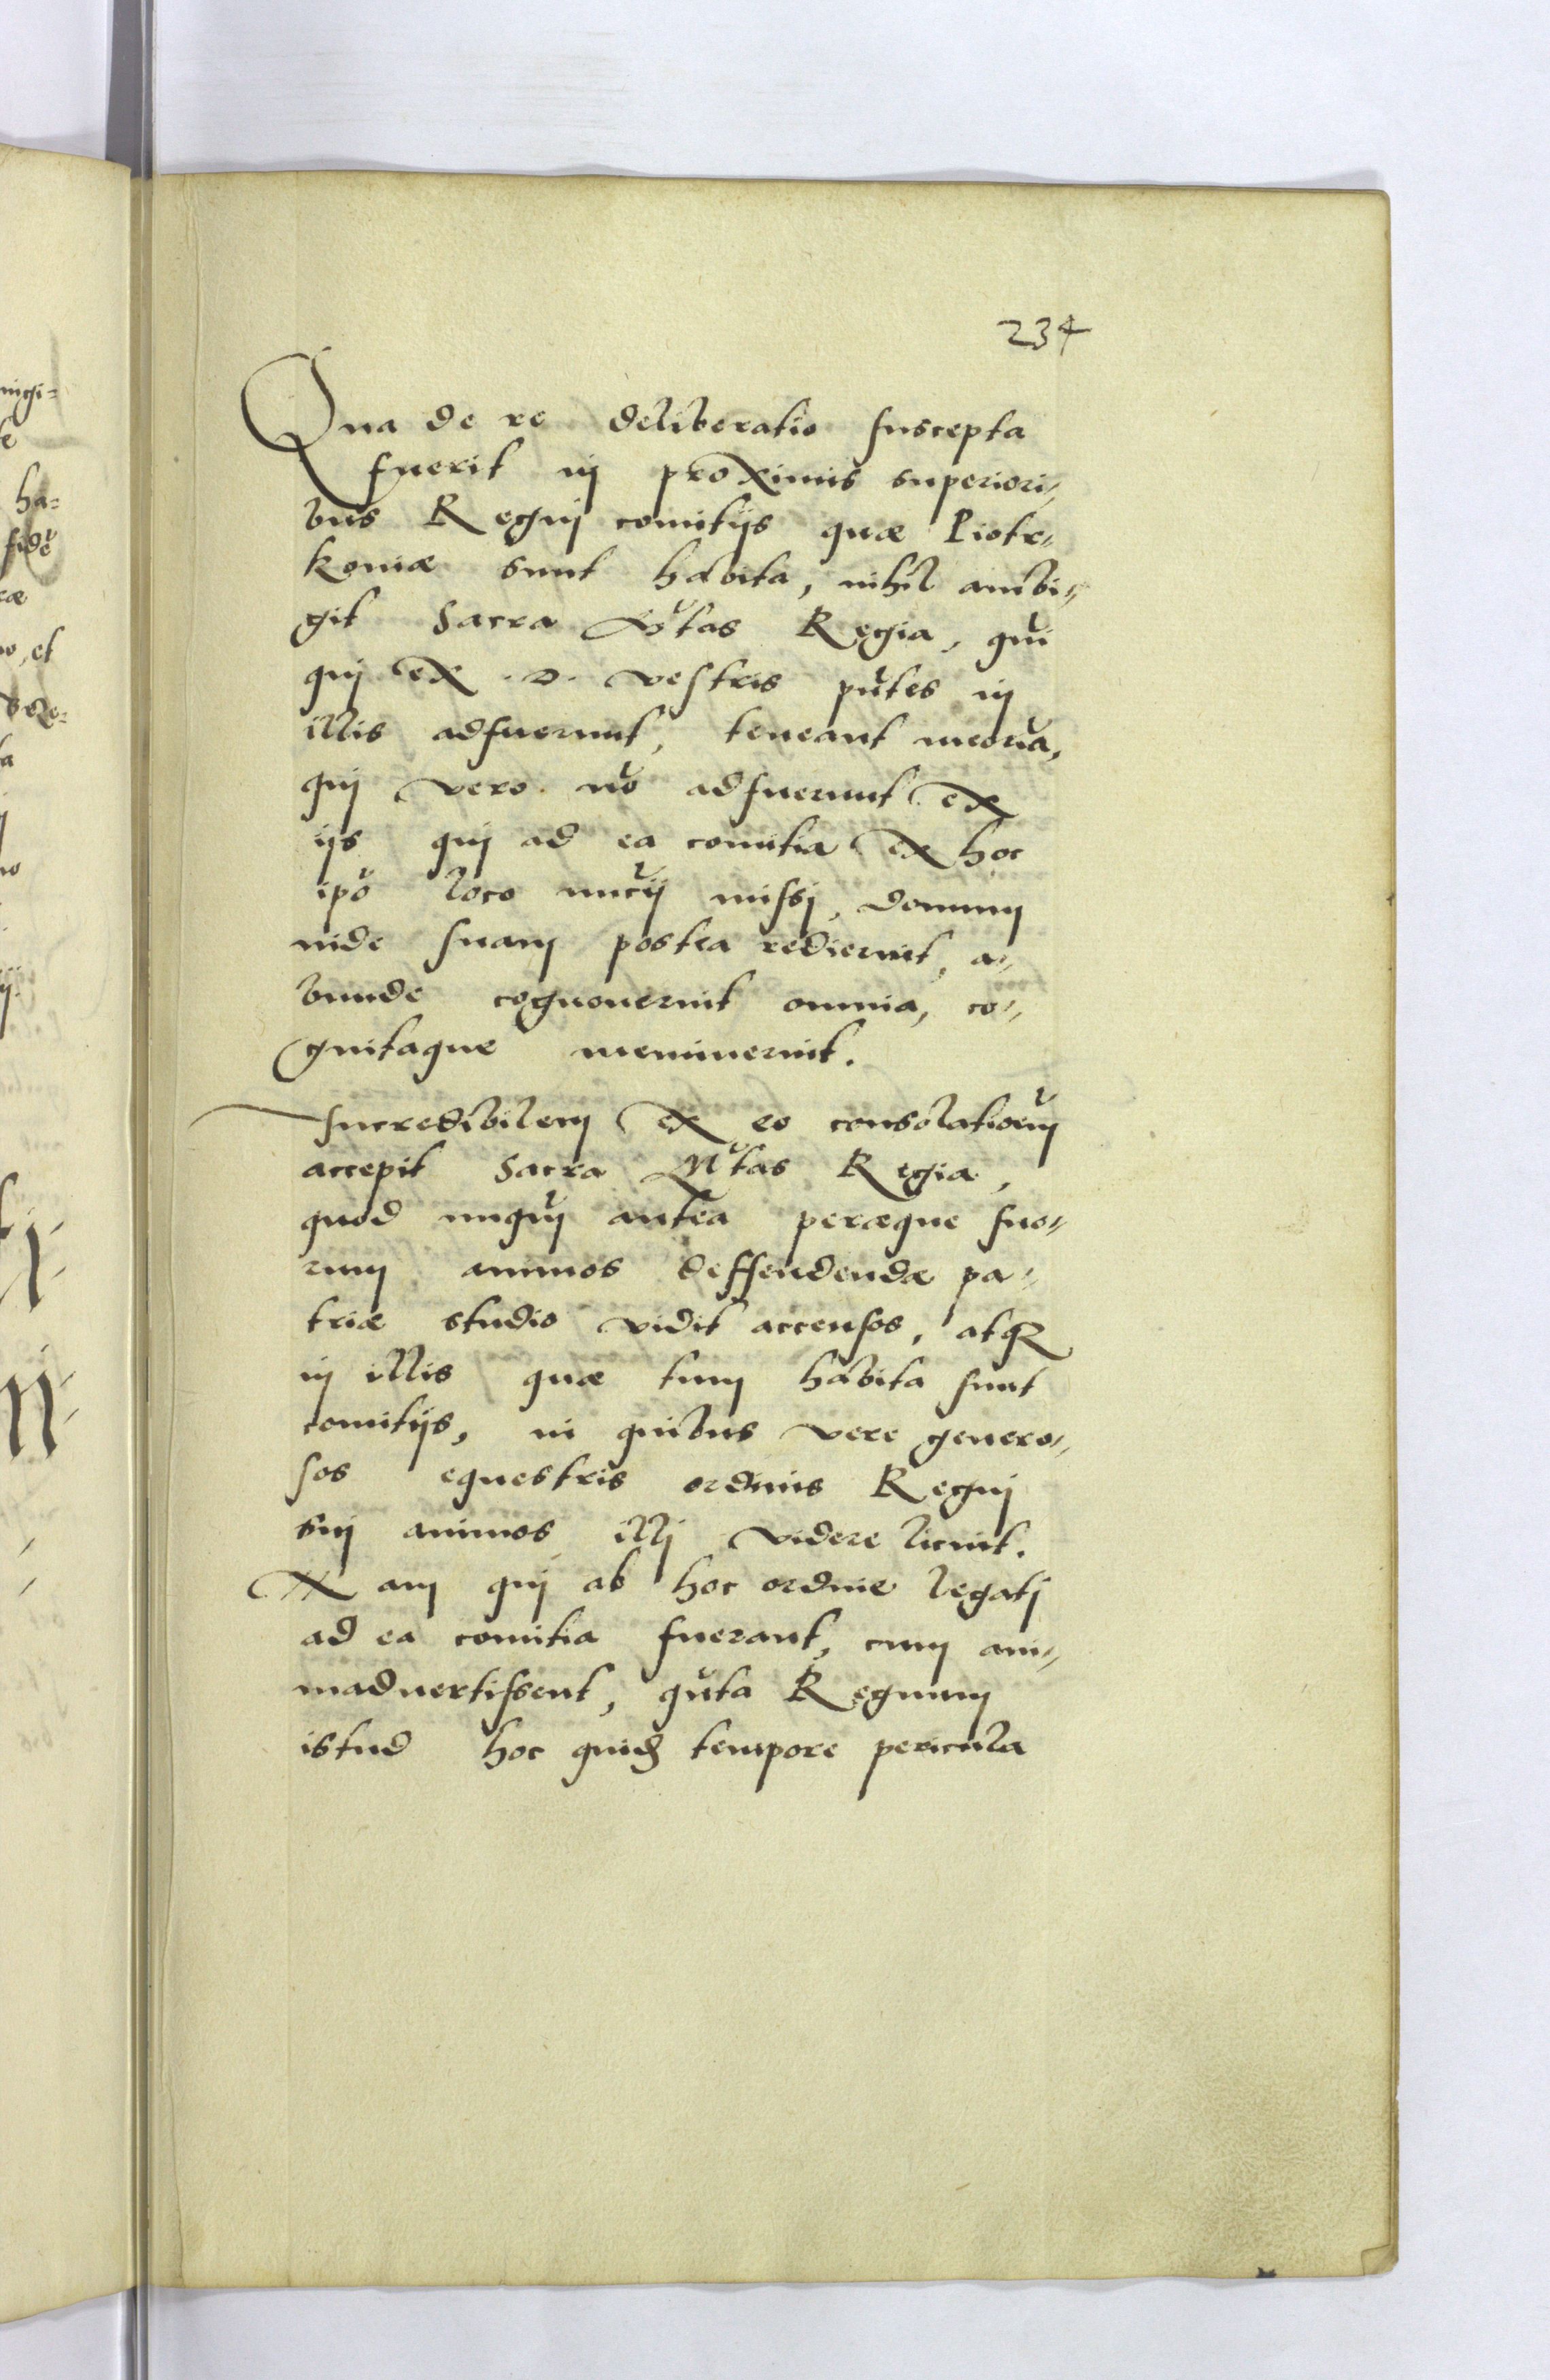 234
Qua de re deliberatio suscepta
fuerit in proximis superiori„
bus Regni comitijs quæ Piotr„
koniæ sunt habita, nihil ambi„
git Sacra M̆tas Regia, quĭ
qui ex .D. vestris pn̆tes in
illis adfuerunt, teneant meoria,
qui vero nŏ adfuerunt ex
ijs qui ad ea comitia ex hoc
ipŏ loco nucĭj missi, domum
inde suam postea redierunt, a„
bunde cognouerint omnia, co„
gnitaque meminerint.
Incredibilem ex eo consolatioĕm
accepit Sacra M̆tas Regia,
quod nunqŭ antea peræque suo„
rum animos deffendendæ pa„
triæ studio vidit accensos, atq̃
in illis quæ tum habita sunt
comitijs, in quibus vere genero„
sos equestris ordinis Regni
sui animos illi videre licuit.
Nam qui ab hoc ordine legati
ad ea comitia fuerant, cum ani„
maduertissent, qŭta Regnum
istud hoc quidẽ tempore pericula
nigi=
ha=
fidĕ
et